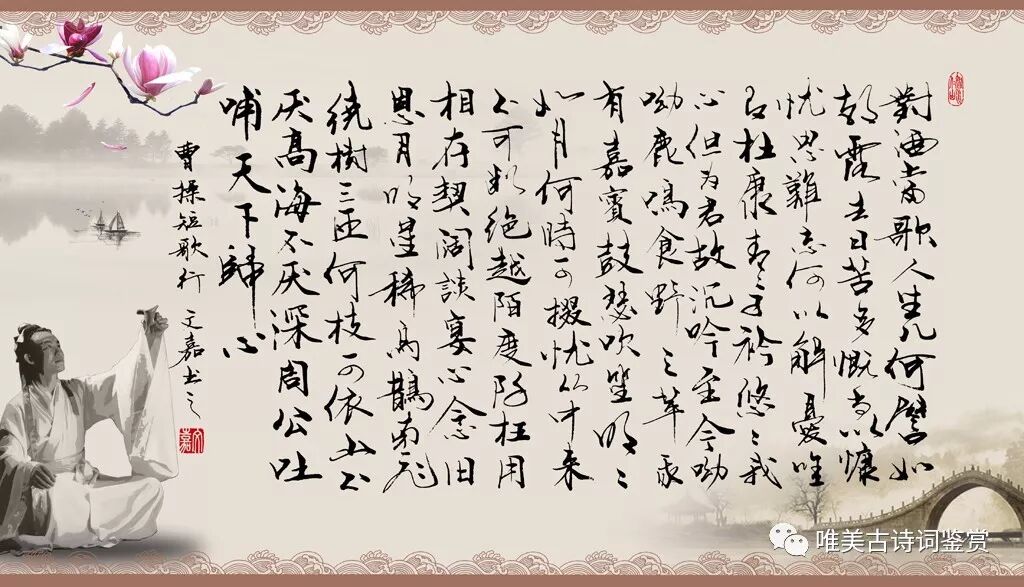 對酒當歌人生几何譬如
朝露去日苦多慨當以慷
忧思難忘何以解憂唯
有杜康青〻子衿悠〻我
心但为君故沉吟至今呦
呦鹿鳴食野之苹我
有嘉賓鼓瑟吹笙明〻
如月何時可掇忧从中来
不可断绝越陌度阡枉用
相存契阔談宴心念旧
恩月明星稀烏鵲南飛
绕樹三匝何枝可依山不
厌高海不厌深周公吐
哺天下歸心
曹操短歌行 文嘉书之
文嘉
唯美古诗词鉴赏